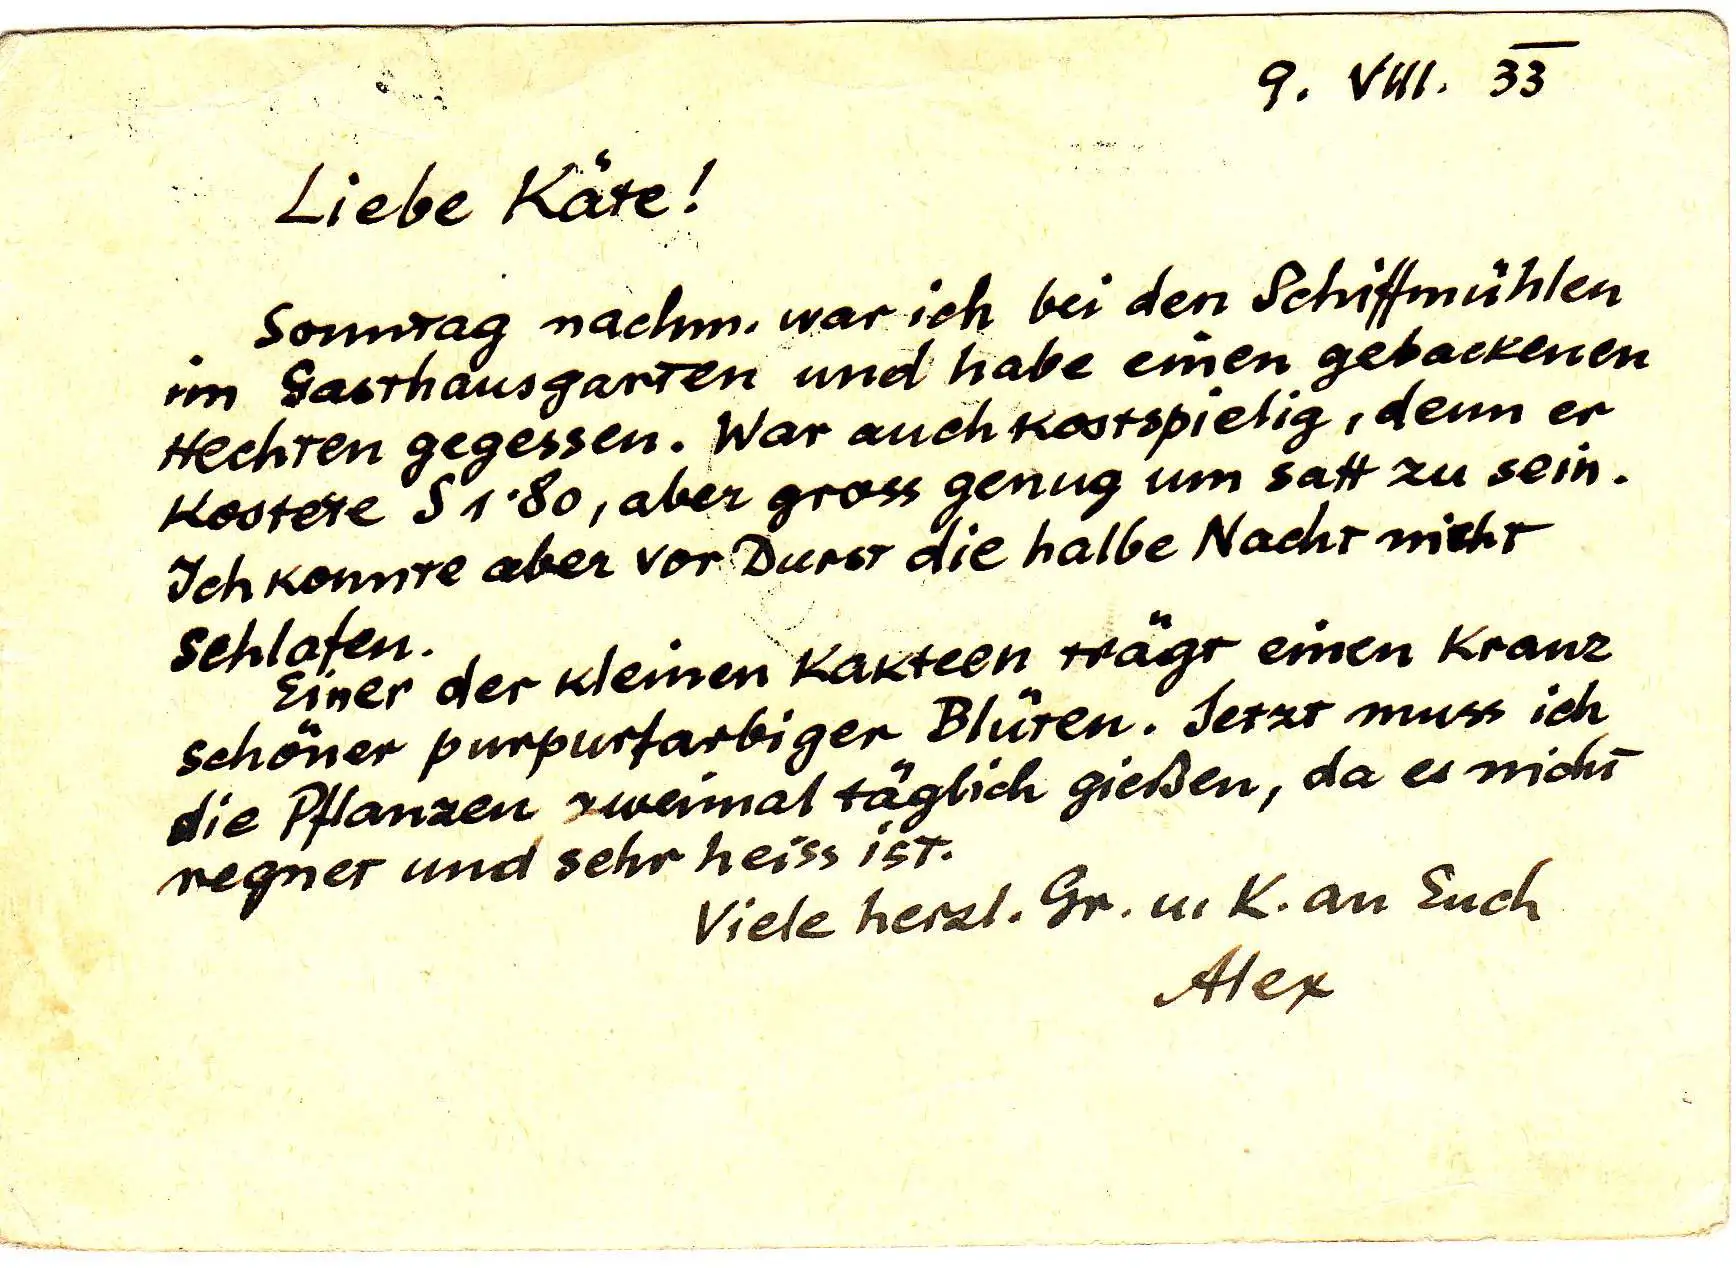 9. VIII. 33
Liebe Käte!
Sonntag nachm. war ich bei den Schiffmühlen
im Gasthausgarten und habe einen gebackenen
Hechten gegessen. War auch kostspielig, denn er
kostete S 1·80, aber gross genug um satt zu sein.
Ich konnte aber vor Durst die halbe Nacht nicht
schlafen.
Einer der kleinen Kakteen trägt einen Kranz
schöner purpurfarbiger Blüten. Jetzt muss ich
die Pflanzen zweimal täglich gießen, da es nicht
regnet und sehr heiss ist.
Viele herzl. Gr. u. K. an Euch
Alex